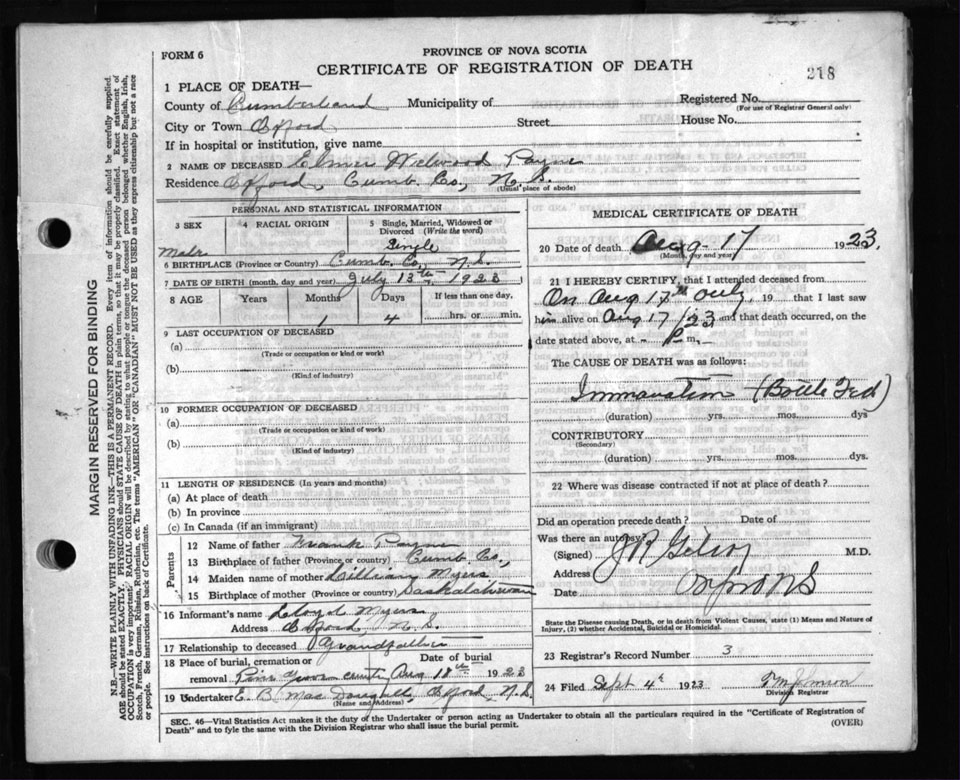 FORM 6
PROVINCE OF NOVA SCOTIA
CERTIFICATE OF REGISTRATION OF DEATH
218
1 PLACE OF DEATH—
County of Cumberland Municipality of Registered No.
(For use of Registrar General only)
City or Town Oxford Street House No.
If in hospital or institution, give name
2 NAME OF DECEASED Elmer Welwood Payne
Residence Oxford, Cumb. Co., N. S.
(Usual place of abode)
PERSONAL AND STATISTICAL INFORMATION
3 SEX 4 RACIAL ORIGIN 5 Single, Married, Widowed or
Divorced (Write the word)
Male Single
6 BIRTHPLACE (Province or Country) Cumb. Co., N.S.
7 DATE OF BIRTH (month, day, and year) July 13th, 1923
8 AGE Years Months Days If less than one day,
1 4 hrs. or min.
9 LAST OCCUPATION OF DECEASED
(a)
(Trade or occupation or kind or work)
(b)
(Kind of industry)
10 FORMER OCCUPATION OF DECEASED
(a)
(Trade or occupation or kind of work)
(b)
(Kind of industry)
11 LENGTH OF RESIDENCE (In years and months)
(a) At place of death
(b) In province
(c) In Canada (if an immigrant)
Parents
12 Name of father Frank Payne
13 Birthplace of father (Province or country) Cumb. Co.,
14 Maiden name of mother Lillian Myers
15 Birthplace of mother (Province or country) Saskatchewan
16 Informant's name Lloyd Myers
Address Oxford N.S.
17 Relationship to deceased Grandfather
18 Place of burial, cremation or Date of burial
removal Pine Grove Aug 18th 1923
19 Undertaker E. B. MacDougall, Oxford N.S.
(Name and Address)
MEDICAL CERTIFICATE OF DEATH
20 Date of death Aug - 17 1923.
(Month, day and year)
21 I HEREBY CERTIFY, that I attended deceased from
On Aug 17th only, 19 that I last saw
him alive on Aug 17/23 and that death occurred, on the
date stated above, at - P m.
The CAUSE OF DEATH was as follows:
(Bottle Fed)
(duration) yrs. mos. dys
CONTRIBUTORY
(Secondary)
(duration) yrs. mos. dys.
22 Where was disease contracted if not at place of death?
Did an operation precede death? Date of
Was there an autopsy?
(Signed) M.D.
Address
Date
State the Disease causing Death, or in death from Violent Causes, state (1) Means and Nature of
Injury, (2) whether Accidental, Suicidal or Homicidal.
23 Registrar's Record Number 3
24 Filed Sept 4th 1923
Division Registrar
SEC. 46—Vital Statistics Act makes it the duty of the Undertaker or person acting as Undertaker to obtain all the particulars required in the "Certificate of Registration of
Death" and to fyle the same with the Division Registrar who shall issue the burial permit. (OVER)
MARGIN RESERVED FOR BINDING
N.B.—WRITE PLAINLY WITH UNFADING INK—THIS IS A PERMANENT RECORD. Every item of information should be carefully supplied.
AGE should be stated EXACTLY. PHYSICIANS should STATE CAUSE OF DEATH in plain terms, so that it may be properly classified. Exact statement of
OCCUPATION is very important. RACIAL ORIGIN will be described by stating to what people or tongue the deceased person belonged whether English, Irish,
Scotch, French, German, Russian, Ruthenian, etc. The terms "AMERICAN" OR "CANADIAN" MUST NOT BE USED as they express citizenship but not a race
or people. See instructions on back of Certificate.